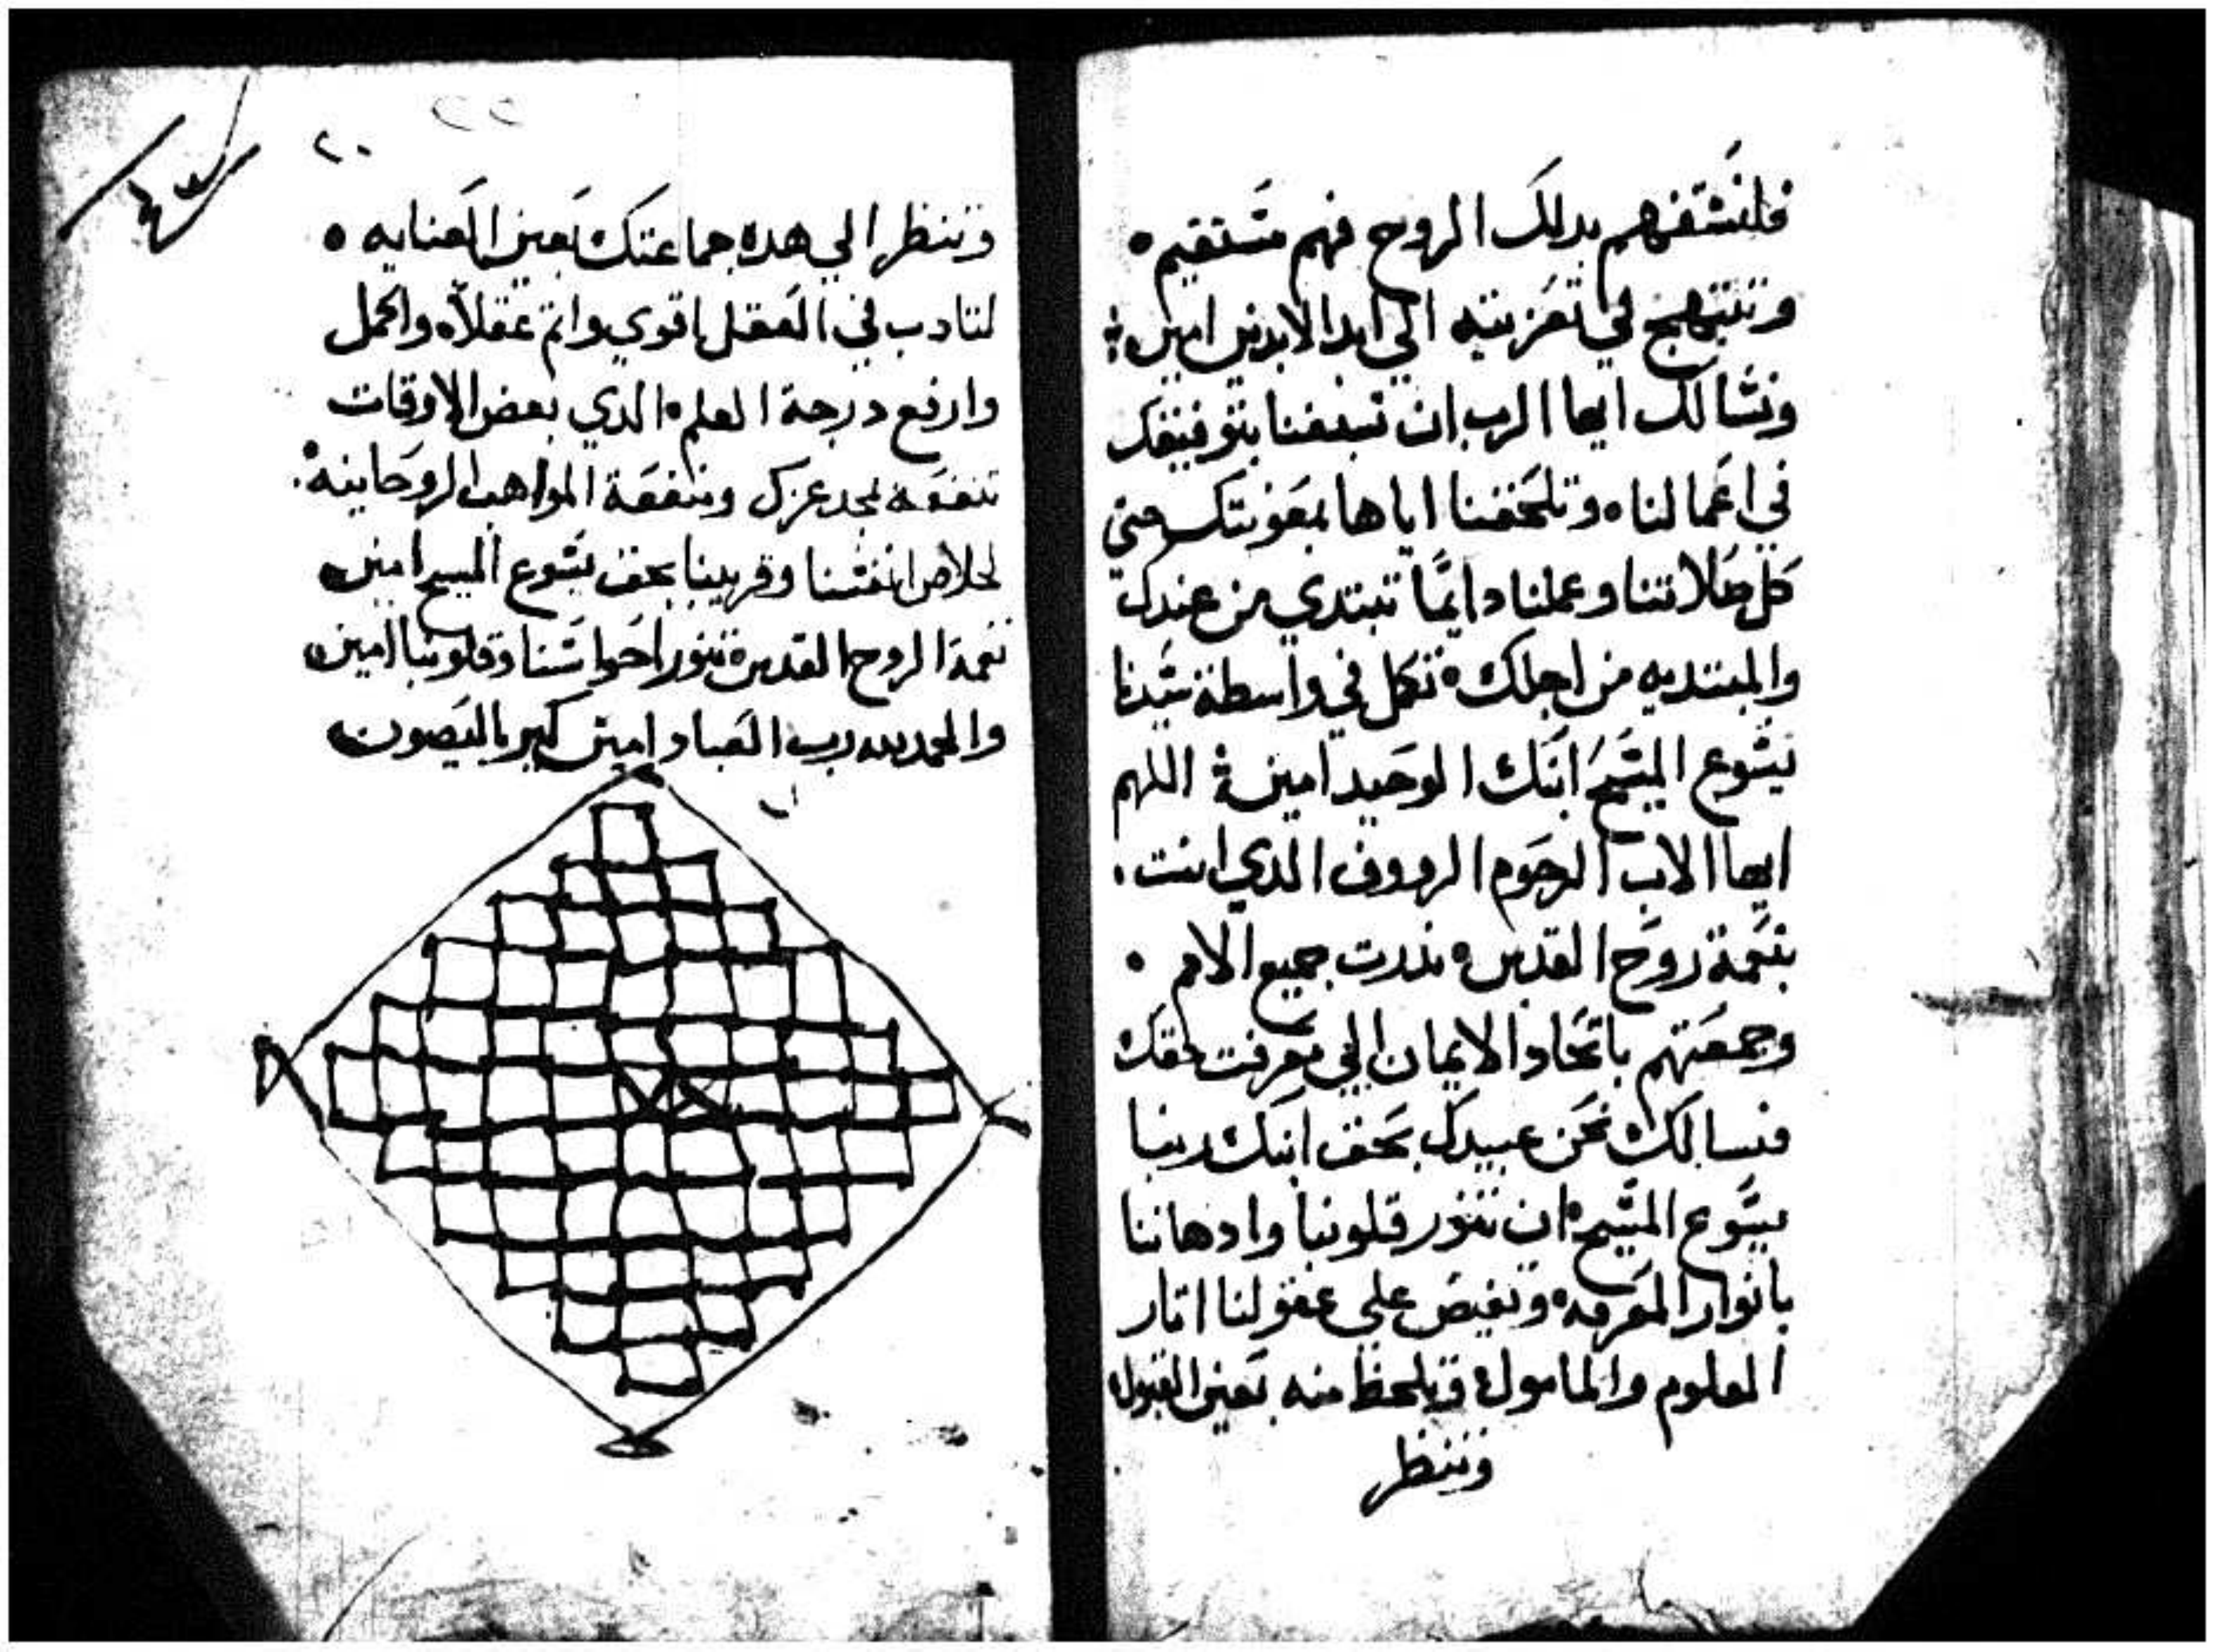 فلنستفهم بدلك الروح فهم مستقيم ه
وتبتهج في تعزيته الي ابد الابدين امين
ونسالك ايها الرب ان تسعفنا بتوفيقك
في اعمالنا ه وتلحقنا اياها بمعونتك حتي
كل صلاتنا وعملنا دايمًا تبتدي من عندك
والمبتديه من اجلك ه تكمل في واسطة سيدنا
يسوع المسيح ابنك الوحيد امين ه اللهم
ايها الاب الرحوم الرووف الدي انت
بنعمة روح القدس ه ندرت جميع الامم ه
وجمعتهم باتحاد الايمان الي معرفت حقك
فنسالك نحن عبيدك بحق ابنك ربنا
يسوع المسيح ه ان تنور قلوبنا وادهاننا
بانوار المعرفه ه وتفيض علي عقولنا اتار
العلوم والمامول ه وتلحظ منه بعين القبول
وتنظر
٢٠
وتنظر الي هده جماعتك بعين العنايه ه
لتادب في العقل باقوي واتم عقلاً ه واكمل
وارفع درجة العلم ه الدي بعض الاوقات
تنفقه لمجد عزك ومنفعة المواهب الروحانيه
لخلاص انفسنا وقريبنا بحق يسوع المسيح امين ه
نعمة الروح القدس ه تنور احواسنا وقلوبنا امين ه
والحمد لله رب العباد امين كيرياليصون